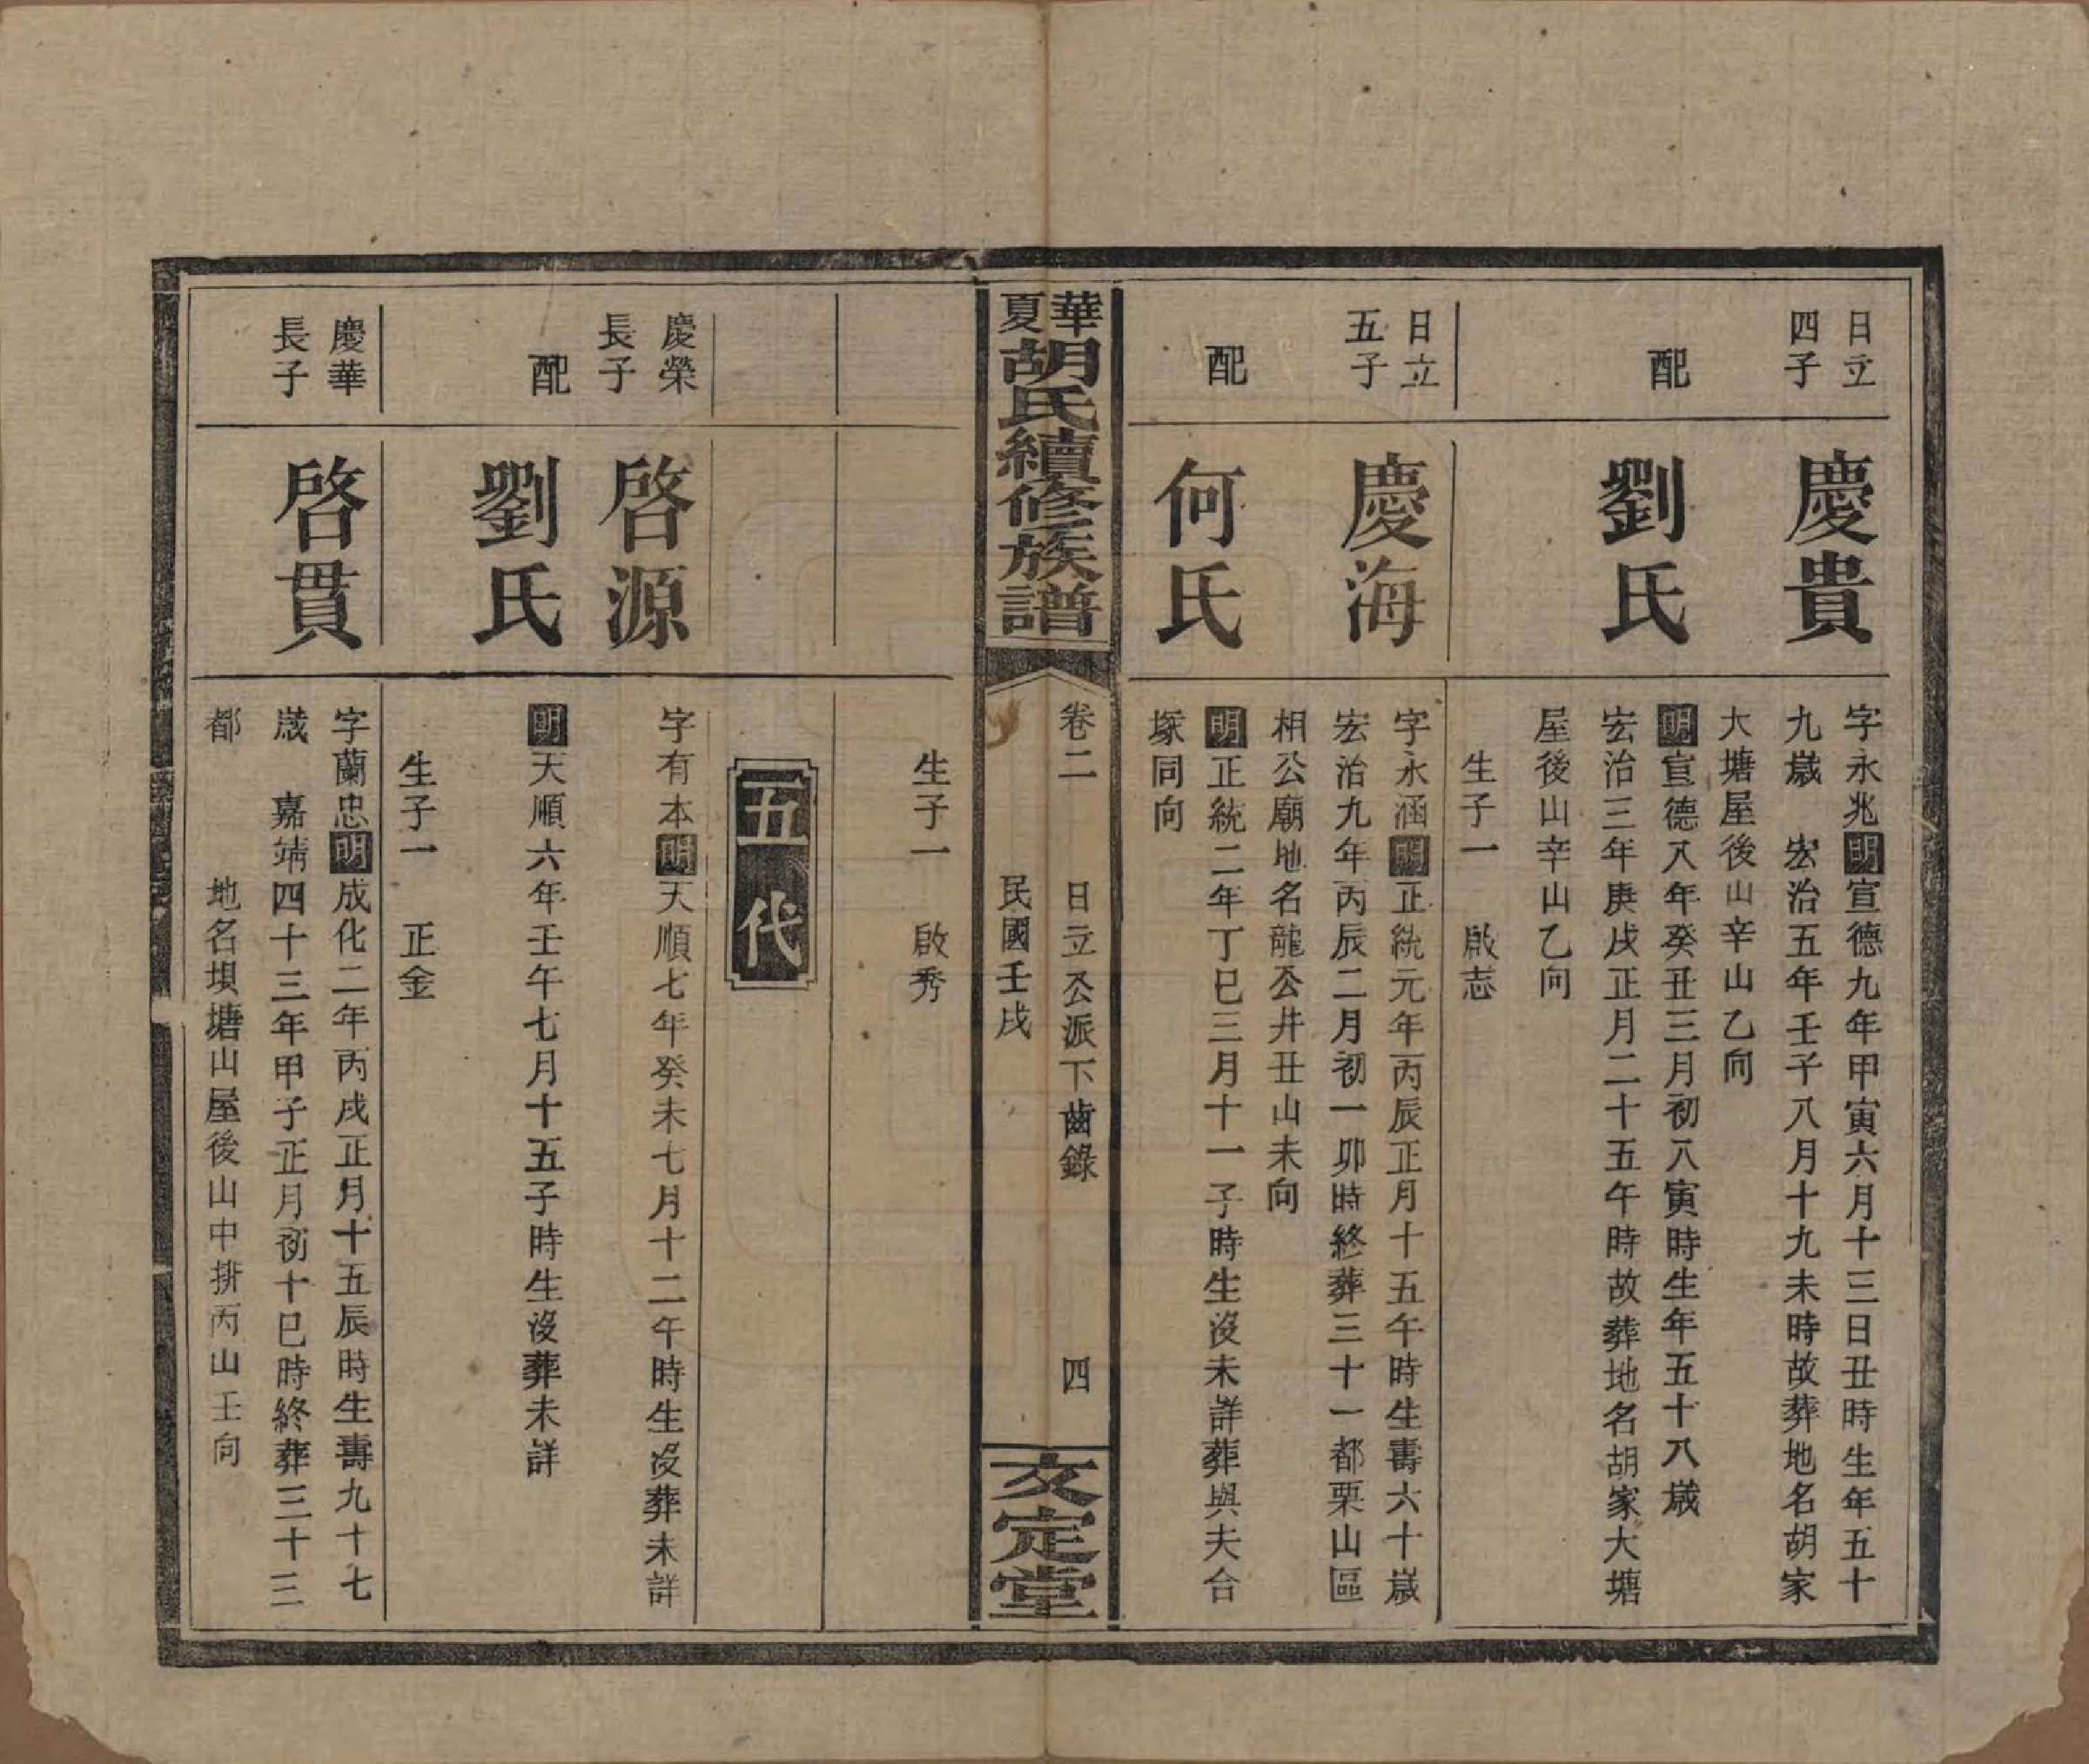 日立
四子
慶貴
字永兆明宣德九年甲寅六月十三日丑時生年五十
九歲　宏治五年壬子八月十九未時故葬地名胡家
大塘屋後山辛山乙向
配
劉氏
明宣德八年癸丑三月初八寅時生年五十八歲
宏治三年庚戌正月二十五午時故葬地名胡家大塘
屋後山辛山乙向
生子一　啟志
日立
五子
慶海
字永涵明正統元年丙辰正月十五午時生壽六十歲
宏治九年丙辰二月初一卯時終葬三十一都栗山區
相公廟地名龍公井丑山未向
配
何氏
明正統二年丁巳三月十一子時生沒未詳葬與夫合
塚同向
華夏胡氏續修族譜
卷二　日立公派下齒錄　四
民國壬戌
文定堂
生子一　啟秀
五代
慶榮
長子
啓源
字有本明天順七年癸未七月十二午時生沒葬未詳
配
劉氏
明天順六年壬午七月十五子時生沒葬未詳
生子一　正金
慶華
長子
啓貫
字蘭忠明成化二年丙戌正月十五辰時生壽九十七
歲　嘉靖四十三年甲子正月初十巳時終葬三十三
都　　　地名垻塘山屋後山中排丙山壬向